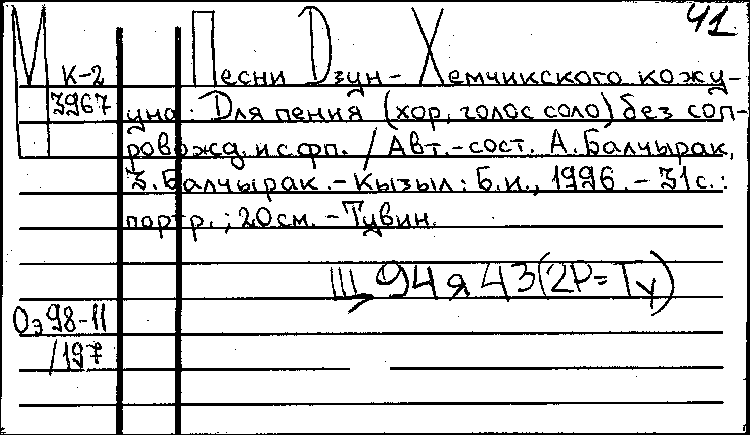 41
М К-2 Песни Дзун-Хемчикского кожу-
3967 уна: Для пения (хор, голос соло) без соп-
ровожд. и с фп. / Авт.-сост. А. Балчырак,
З. Балчырак. - Кызыл: Б.и., 1996. - 31 с.:
портр.; 20 см. - Тувин.
Щ94я43(2Р=Ту)
Оэ98-11
/197